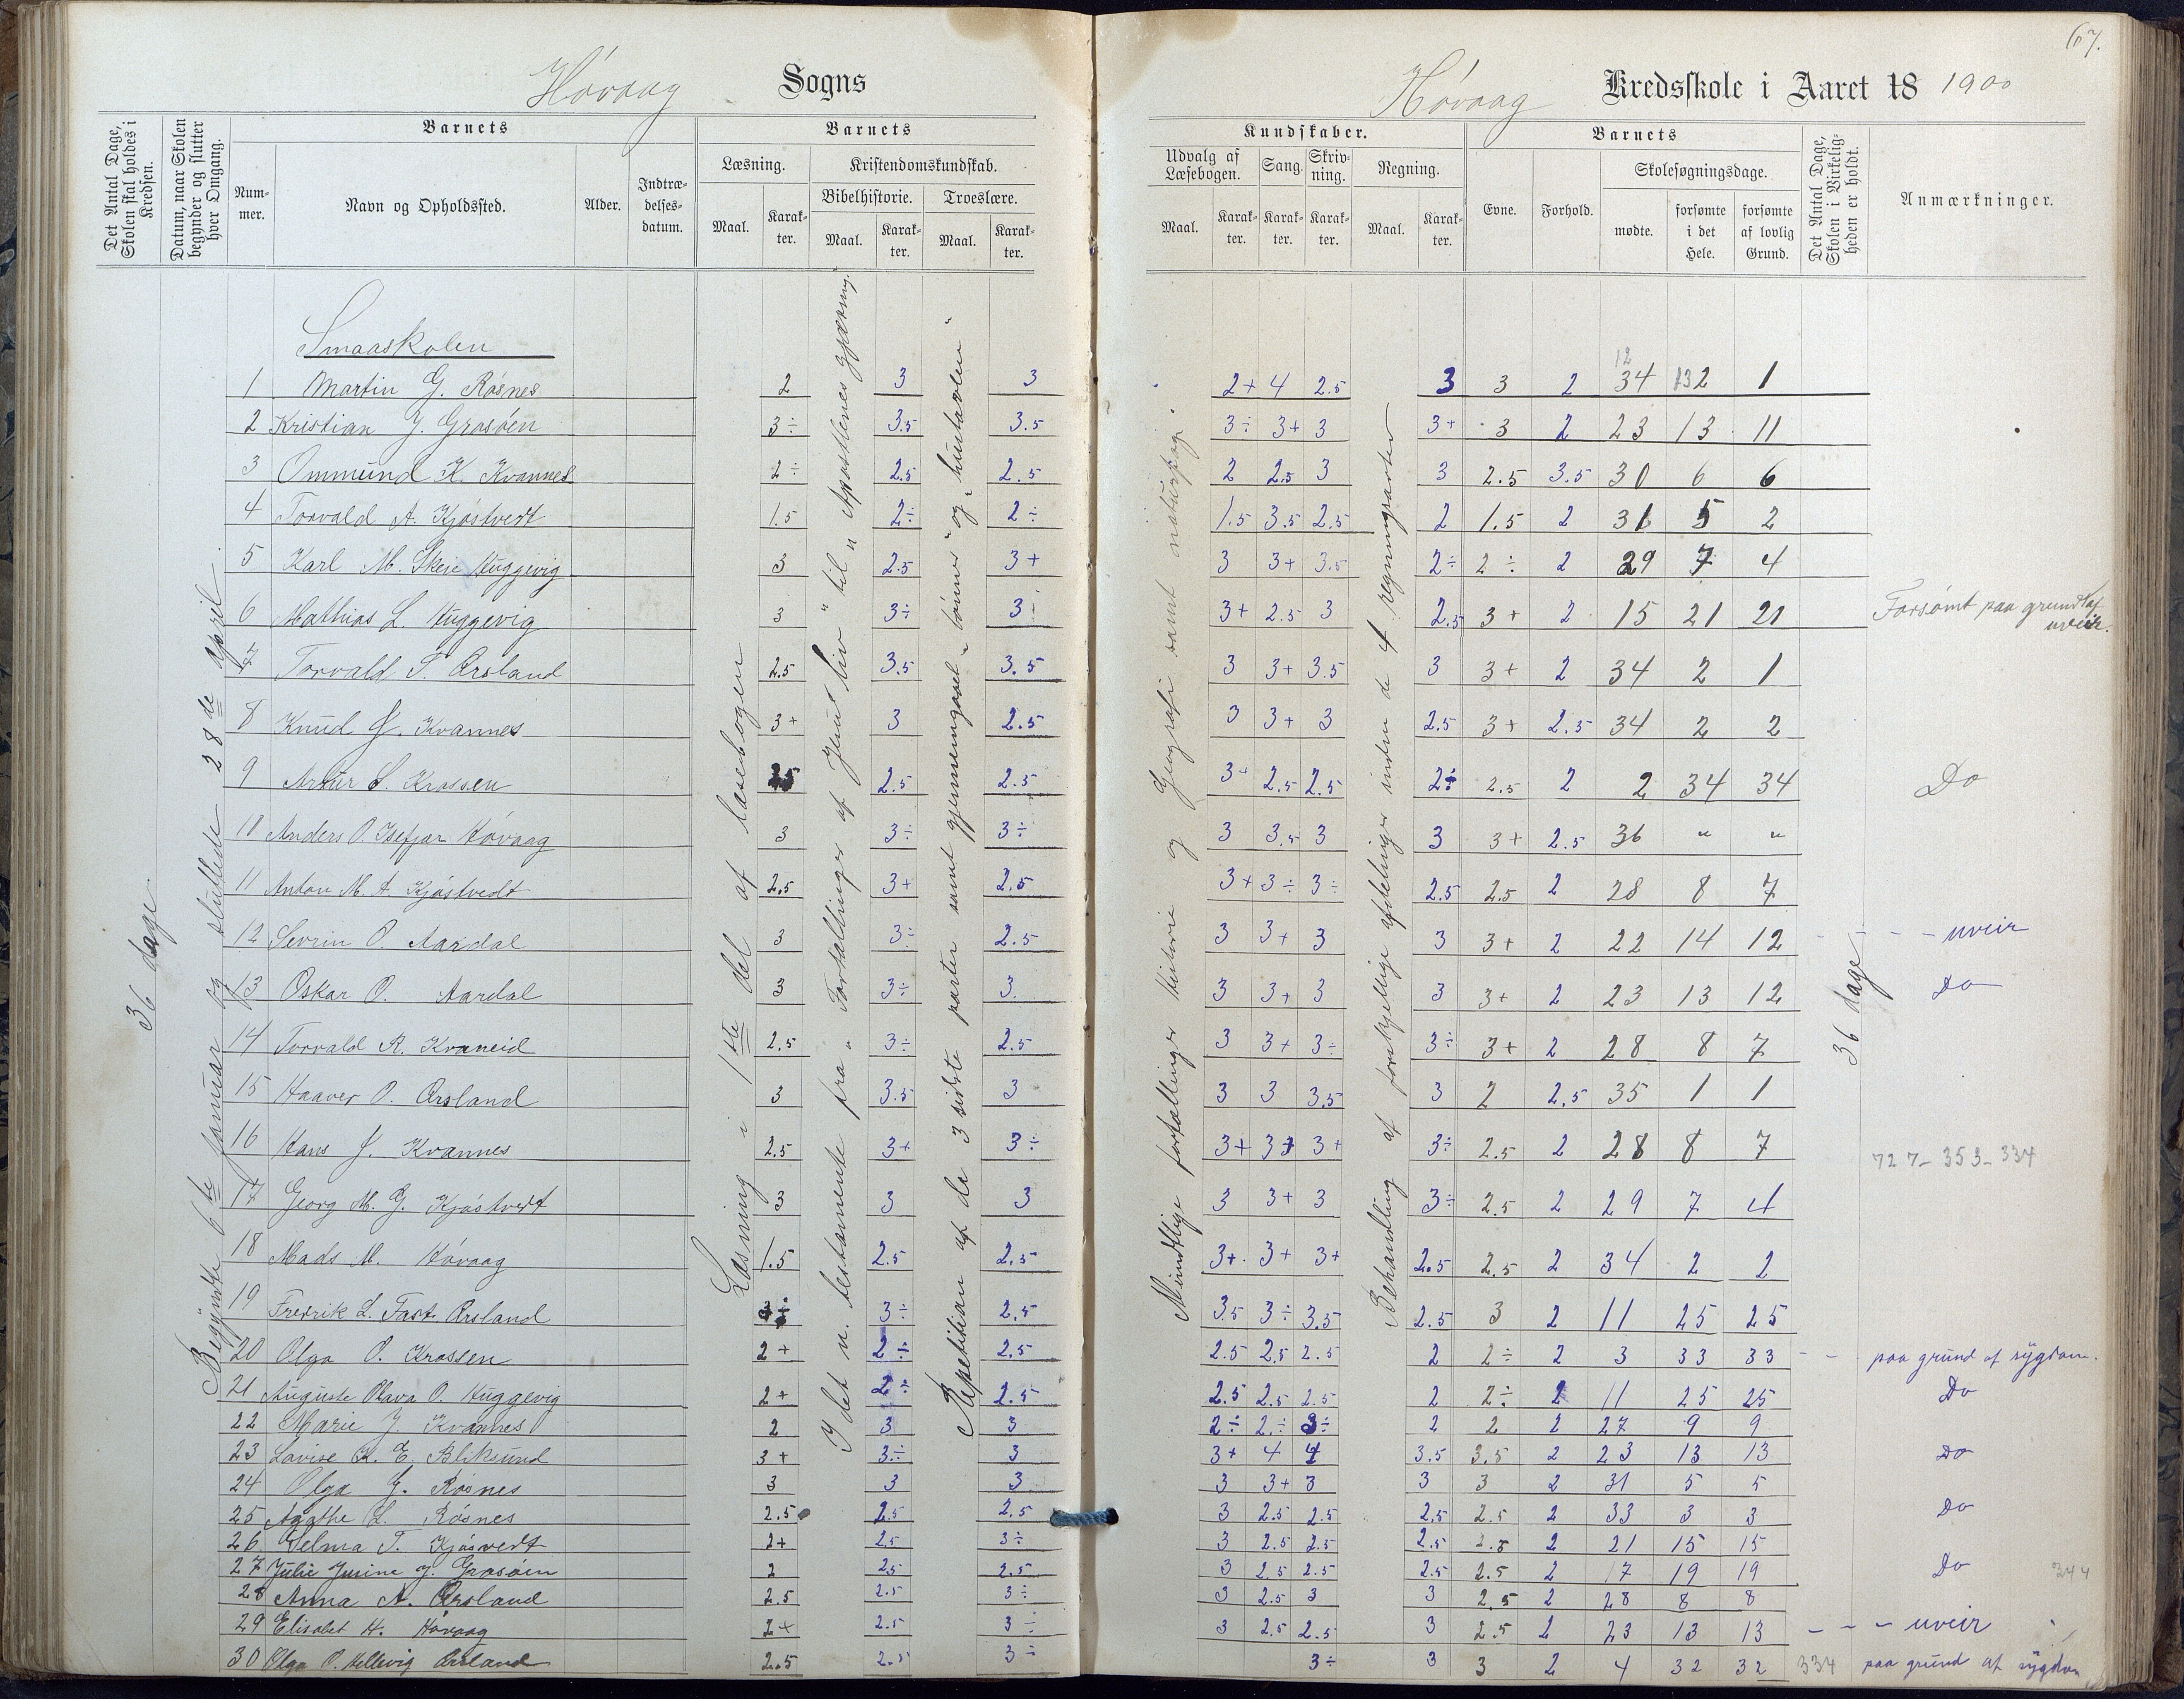 67.
Høvaag Sogns
Høvaag Kredsskole i Aaret 18 1900
Det Antal Dage, Skolen skal holdes i Kredsen.
Datum, naar Skolen begynder og slutter hver Omgang.
Barnets
Num-mer.
Navn og Opholdssted.
Alder.
Indtræ-delses-datum.
Barnets
Læsning.
Maal.
Karak-ter.
Kristendomskundskab.
Bibelhistorie.
Maal.
Karak-ter.
Troeslære.
Maal.
Karak-ter.
Kundskaber.
Udvalg af Læsebogen.
Maal.
Karak-ter.
Sang.
Karak-ter.
Skriv-ning.
Karak-ter.
Regning.
Maal.
Karak-ter.
Barnets
Evne.
Forhold.
Skolesøgningsdage.
mødte.
forsømte i det Hele.
forsømte af lovlig Grund.
Det Antal Dage, Skolen i Virkelig-heden er holdt.
Anmærkninger.
36 dage
Begyndte 6te januar og sluttede 28de april.
Læsning i 1ste del af læsebogen
I det n. testamente fra "Fortællinger af Jesu liv" til "Apostlenes gjerning."
Repetition af de 3 sidste parter samt gjennemgaael "bønner" og "hustavlen"
Mundtlige fortællinger historie og Geografi samt naturfag.
Behandling af forskjellige afdelinger inden de 4 regningsarter
36 dage
Smaaskolen
12
1 Martin G. Røsnes 2 3 3 2+ 4 2.5 3 3 2 34 2 1
2 Kristian J. Grosøen 3÷ 3.5 3.5 3÷ 3+ 3 3+ 3 2 23 13 11
3 Ommund K. Kvannes 2÷ 2.5 2.5 2 2.5 3 3 2.5 3.5 30 6 6
4 Torvald A. Kjøstvedt 1.5 2÷ 2÷ 1.5 3.5 2.5 2 1.5 2 31 5 2
5 Karl M. Skeie Huggevig 3 2.5 3+ 3 3+ 3.5 2÷ 2÷ 2 29 7 4
6 Mathias L. Huggevig 3 3÷ 3÷ 3+ 2.5 3 2.5 3+ 2 15 21 21 Forsømt paa grund af uveir.
7 Torvald S. Ørsland 2.5 3.5 3.5 3 3+ 3.5 3 3+ 2 34 2 1
8 Knud J. Kvannes 3+ 3 2.5 3 3+ 3 2.5 3+ 2.5 34 2 2
9 Artur S. Krossen 2.5 2.5 2.5 3+ 2.5 2.5 2÷ 2.5 2 2 34 34 Do
10 Anders O. Isefjær Høvaag 3 3÷ 3÷ 3 3.5 3 3 3+ 2.5 36 " "
11 Anton M. A. Kjøstvedt 2.5 3+ 2.5 3+ 3÷ 3÷ 2.5 2.5 2 28 8 7
12 Sevrin O. Aardal 3 3÷ 2.5 3 3+ 3 3 3+ 2 22 14 12 - - - uveir
13 Oskar O. Aardal 3 3÷ 3. 3 3+ 3 3 3+ 2 23 13 12 Do
14 Torvald R. Kvaneid 2.5 3÷ 2.5 3 3+ 3÷ 3÷ 3+ 2 28 8 7
15 Haaver O. Ørsland 3 3.5 3 3 3 3.5 3 2 2.5 35 1 1
16 Hans J. Kvannes 2.5 3+ 3÷ 3+ 3+ 3+ 3÷ 2.5 2 28 8 7
727-353-334
17 Georg M. G. Kjøstvedt 3 3 3 3 3+ 3 3÷ 2.5 2 29 7 4
18 Mads M. Høvaag 1.5 2.5 2.5 3+. 3+ 3+ 2.5 2.5 2 34 2 2
19 Fredrik L. Fast. Ørsland 3÷ 3÷ 2.5 3.5 3÷ 3.5 2.5 3 2 11 25 25
20 Olga O. Krossen 2+ 2÷ 2.5 2.5 2.5 2.5 2 2÷ 2 3 33 33 - - paa grund af sygdom.
21 Auguste Olava O. Huggevig 2+ 2÷ 2.5 2.5 2.5 2.5 2 2÷ 2 11 25 25 Do
22 Marie J. Kvannes 2 3 3 2÷ 2÷ 3÷ 2 2 2 27 9 9
23 Lovise K. E. Bliksund 3+ 3÷ 3 3+ 4 4 3.5 3.5 2 23 13 13 Do
24 Olga G. Røsnes 3 3 3 3 3+ 3 3 3 2 31 5 5
25 Agathe L. Røsnes 2.5 2.5 2.5 3 2.5 2.5 2.5 2.5 2 33 3 3 Do
26 Selma T. Kjøsvedt 2+ 2.5 3÷ 3 2.5 2.5 2.5 2.5 2 21 15 15
27 Julie Jusine J. Grosøen 2 2.5 2.5 3 2.5 2.5 2.5 2.5 2 17 19 19 Do 344
28 Anna A. Ørsland 2.5 2.5 3÷ 3 2.5 3 3 2.5 2 28 8 8
29 Elisabet H. Høvaag 2+ 2.5 3÷ 3 2.5 2.5 3 2.5 2 23 13 13 - - - uveir
30 Olga O. Hellevig Ørsland 2.5 2.5 3÷ 3÷ 3 3 2 4 32 32 334 paa grund af sygdom